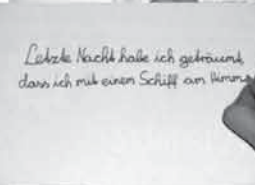 Letzte Nacht habe ich geträumt,
dass ich mit einem Schiff am Himme